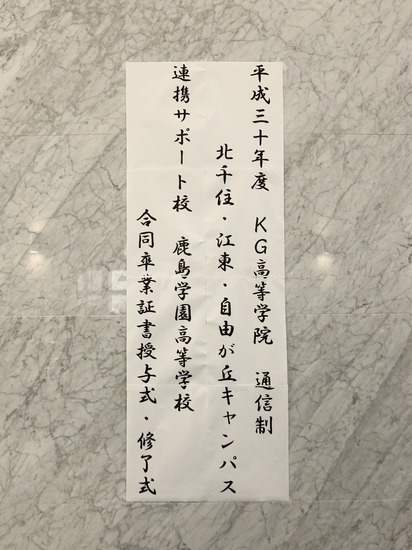 平成三十年度 KG高等学院 通信制
北千住・江東・自由が丘キャンパス
連携サポート校 鹿島学園高等学校
合同卒業証書授与式・修了式